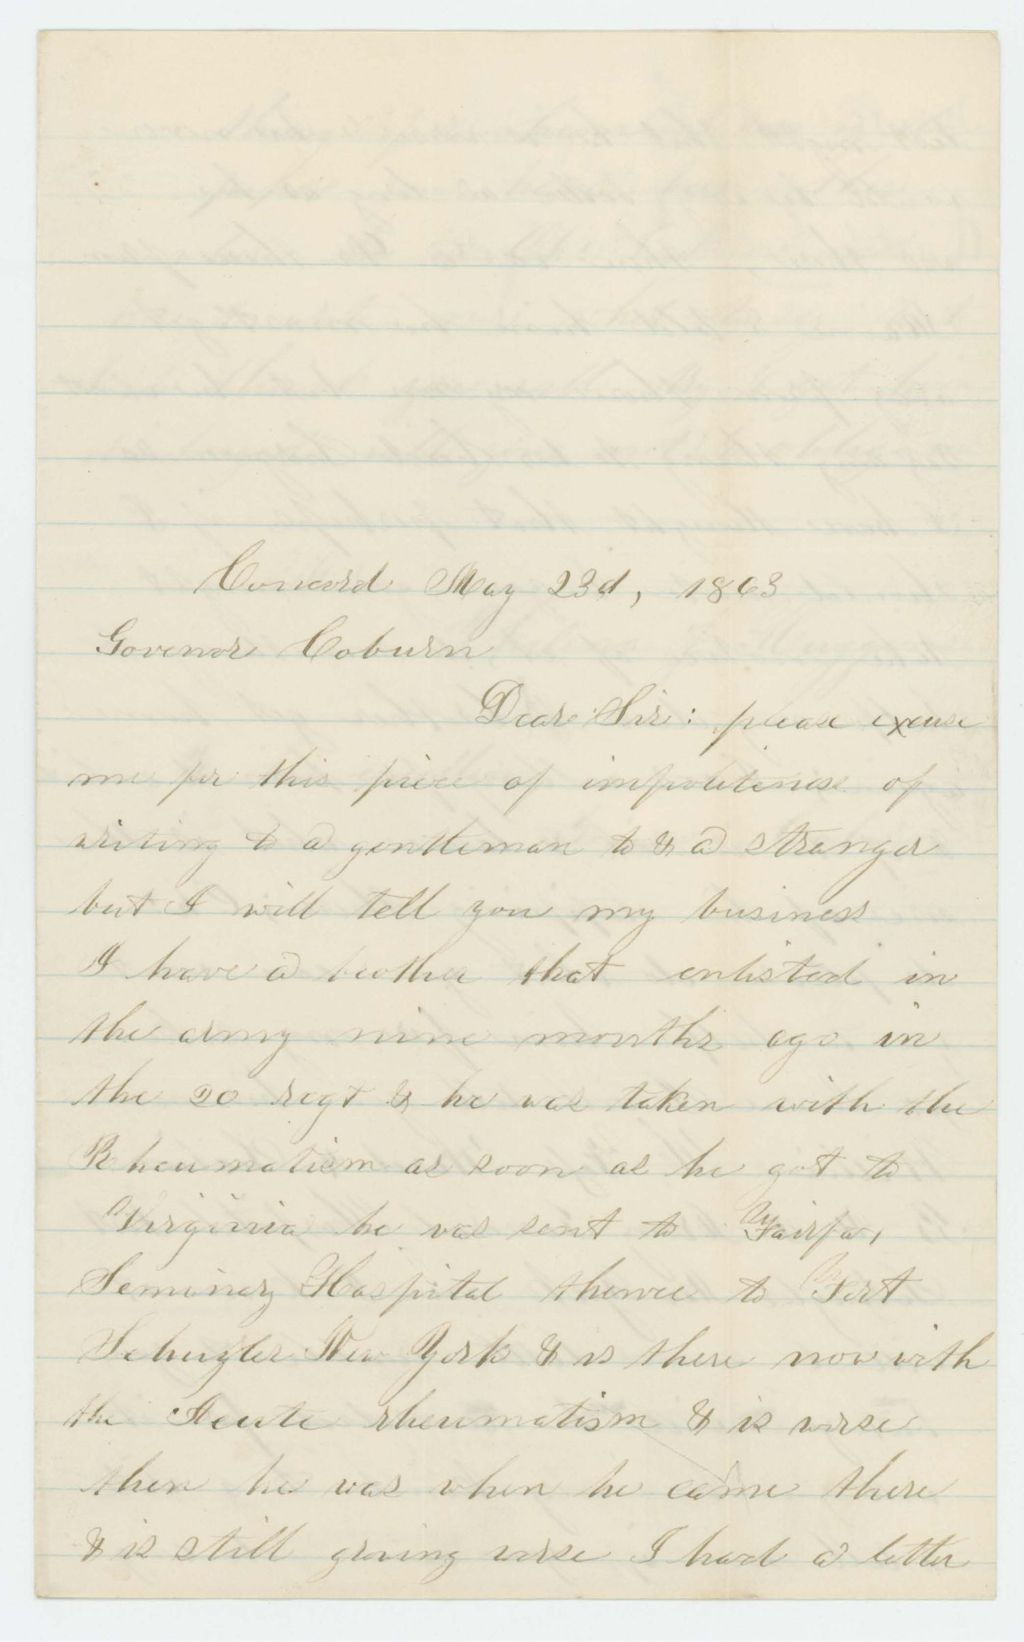 Concord May 23d, 1863
Govenor Coburn
Dear Sir: please excuse
me for this piece of impoliteness of
writing to a gentleman to & a stranger
but I will tell you my business
I have a brother that enlisted in
the army nine months ago in
the 20 regt & he was taken with the
Rheumatism as soon as he got to
Virginia he was sent to Fairfax,
Seminary Hospital thence to Fort
Schuyler New York & is there now with
the Acute rheumatism & is worse
then he was when he came there
& is still growing worse I had a letter